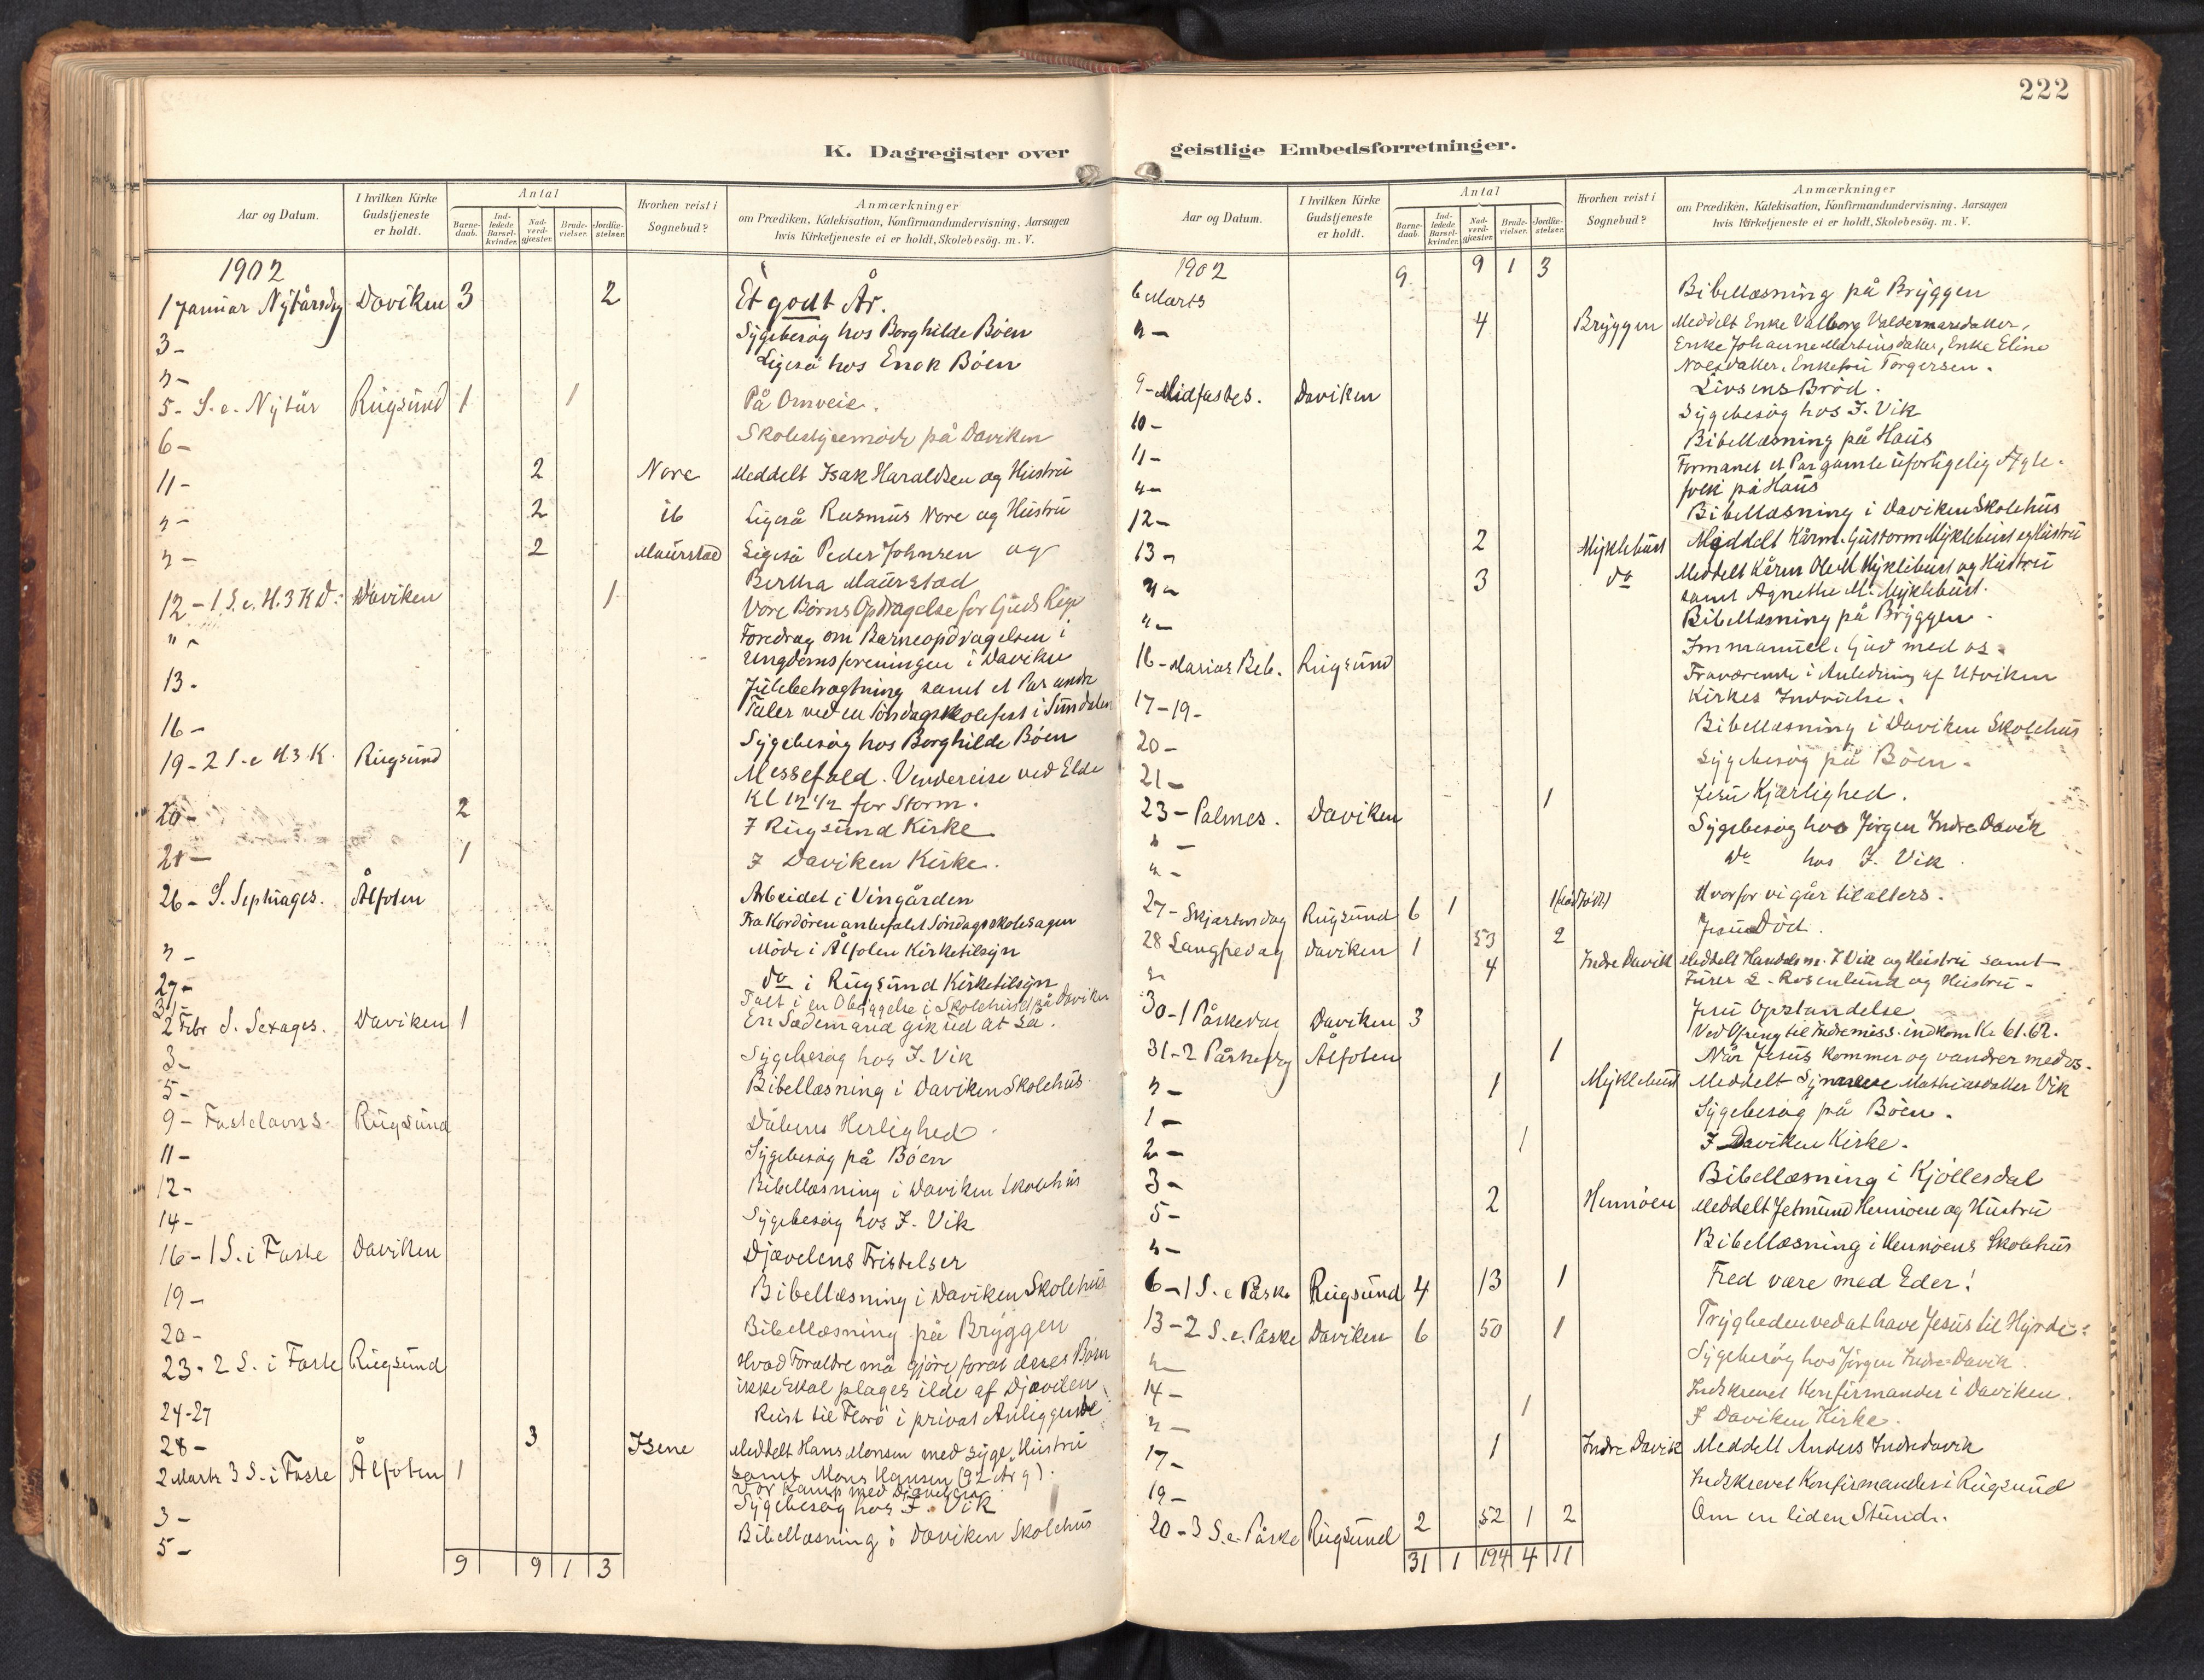 222
K. Dagregister over
Aar og Datum. I hvilken Kirke Gudstjeneste er holdt. Antal Barnedaab. Indledede Barselkvinder. Nadverdgjæster. Brudevielser. Jordfæstelser. Hvorhen reist i Sognebud? Anmærkninger om Prædiken, Katekisation, Konfirmandundervisning, Aarsagen hvis Kirketjeneste ei er holdt, Skolebesög. m. V.
1902
1 Januar Nytårsdag Daviken 3 2 Et godt År.
3 - Sygebesøg hos Borghilde Böen
" - Ligeså hos Enok Böen
5 - S. e. Nytår Rugsund 1 1 På Omveie.
6 - Skolestyremöde på Daviken
11 - 2 Nore Meddelt Isak Haraldsen og Hustru
" - 2 ib Ligeså Rasmus Nore og Hustru
" - 2 Maurstad Ligeså Peder Johnsen og
Bertha Maurstad
12 - 1 S. e. H. 3 K D. Daviken 1 Vore Børns Opdragelse for Guds Rige
" - Foredrag om Barneopdragelsen i
Ungdomsforeningen i Daviken
13 - Julebetragtning samt et Par andre
Taler ved en Söndagsskolefest i Sumdalen
16 - Sygebesøg hos Borghilde Böen
19 - 2 S. e H 3 K. Rugsund Messefald. Vendereise ved Elde
Kl 12 1/2 for Storm.
20 - 2 I Rugsund Kirke
21 - 1 I Daviken Kirke.
26 - S. Septuages. Ålfoten Arbeidet i Vingården
Fra Kordören anbefalet Söndagsskolesagen
" - Möde i Ålfoten Kirketilsyn
27 - do i Rugsund Kirketilsyn
31 - Talt i en Opbyggelse i Skolehuset på Daviken
2 Febr S. Sexages. Daviken 1 En Sædemand gik ud at så.
3 - Sygebesøg hos J. Vik
5 - Bibellæsning i Daviken Skolehus
9 - Fastelavns S. Rugsund Dåbens Herlighed
11 - Sygebesøg på Böen
12 - Bibellæsning i Daviken Skolehus
14 - Sygebesøg hos J. Vik
16 - 1 S. i Faste Daviken Djævelens Fristelser
19 - Bibellæsning i Daviken Skolehus
20 - Bibellæsning på Bryggen
23 - 2 S. i Faste Rugsund Hvad Forældre må gjöre forat deres Börn
ikke skal plages ilde af Djævelen
24-27 Reist til Florö i privat Anliggende
28 - 3 Isene Meddelt Hans Monsen med syge Hustru
samt Mons Hansen (92 År g).
2 Marts 3 S. i Faste Ålfoten 1 Vor Kamp med Djævelen
3 - Sygebesøg hos J. Vik
5 - Bibellæsning i Daviken Skolehus
9 9 1 3
geistlige Embedsforretninger.
Aar og Datum. I hvilken Kirke Gudstjeneste er holdt. Antal Barnedaab. Indledede Barselkvinder. Nadverdgjæster. Brudevielser. Jordfæstelser. Hvorhen reist i Sognebud? Anmærkninger om Prædiken, Katekisation, Konfirmandundervisning, Aarsagen hvis Kirketjeneste ei er holdt, Skolebesög. m. V.
1902 9 9 1 3
6 Marts Bibellæsning på Bryggen
" - 4 Bryggen Meddelt Enke Valborg Valdemarsdatter,
Enke Johanne Martinsdatter, Enke Eline
Enkefru Torgersen.
9 - Midfastes. Daviken Livsens Bröd.
10 - Sygebesøg hos J. Vik
11 - Bibellæsning på Haus
" - Formanet et Par gamle uforligelig Ægte-
folk på Haus
12 - Bibellæsning i Daviken Skolehus
13 - 2 Myklebust Meddelt Kårm. Guttorm Myklebust og Hustru
" - 3 do Meddelt Kårm Ole M Myklebust og Hustru
samt Agnethe M. Myklebust.
" - Bibellæsning på Bryggen.
16 - Marias Beb. Rugsund Immanuel. Gud med os.
17-19 - Fraværende i Anledning af Utviken
Kirkes Indvielse.
20 - Bibellæsning i Daviken Skolehus
21 - Sygebesøg på Böen.
23 - Palmes. Daviken 1 Jesu Kjærlighed.
" - Sygebesøg hos Jörgen Indre Davik
" - do hos J. Vik
27 - Skjærtorsdag Rugsund 6 1 1 Hvorfor vi går til alters.
28 Langfredag Daviken 1 53 2 Jesu Död.
" 4 Indre Davik Meddelt Handelsm. J Vik og Hustru samt
Furer L. Rosenlund og Hustru -
30 - 1 Påskedag Daviken 3 Jesu Opstandelse
Ved Ofring til Indremiss. indkom Kr 61.62.
31 - 2 Påskedag Ålfoten 1 Når Jesus kommer og vandrer med os.
" - 1 Myklebust Meddelt Synneve Mathiasdatter Vik
1 - Sygebesøg på Böen.
2 - 1 I Daviken Kirke.
3 - Bibellæsning i Kjöllesdal
5 - 2 Hennöen Meddelt Jetmund Hennöen og Hustru
" - Bibellæsning i Hennöens Skolehus
6 - 1 S. e Påske Rugsund 4 13 1 Fred være med Eder!
13 - 2 S. e. Påske Daviken 6 50 1 Trygheden ved at have Jesus til Hyrde.
" - Sygebesøg hos Jörgen Indre Davik.
14 - Indskrevet Konfirmander i Daviken.
" - 1 I Daviken Kirke.
17 - 1 Indre Davik Meddelt Anders Indredavik
19 - Indskrevet Konfirmander i Rugsund
20 - 3 S. e. Påske Rugsund 2 52 1 2 Om en liden Stund.
31 1 194 4 11